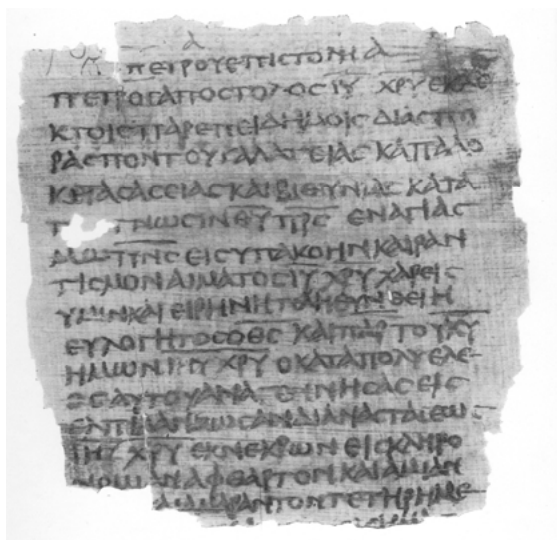 ΠΕΤΡΟΥΕΠΙСΤΟΛΗ Α
ΠΕΤΡΟСΑΠΟСΤΟΛΟСΙΥ ΧΡΥ ΕΚΛΕ
ΚΤΟΙСΠΑΡΕΠΕΙΔΗΜΟΙС ΔΙΑСΠΟ
ΡΑСΠΟΝΤΟΥΓΑΛΑΤΕΙΑС ΚΑΠΑΔΟ
ΑССΕΙΑС ΚΑΙ ΒΙΘΥΝΙΑС ΚΑΤΑ
ΓΝΩСΙΝ ΘΥ ΠΡС ΕΝΑΓΙΑС
ΕΙС ΥΠΑΚΟΗΝ ΚΑΙ ΡΑΝ
ΤΙСΜΟΝ ΑΙΜΑΤΟС ΙΥ ΧΡΥ ΧΑΡΕΙС
ΥΜΙΝ ΚΑΙ ΕΙΡΗΝΗ ΠΛΗΘΥΝΘΕΙΗ
ΕΥΛΟΓΗΤΟС Ο ΘС ΚΑΙ ΠΑΡ ΤΟΥ ΚΥ
ΗΜΩΝ ΙΗΥ ΧΡΥ Ο ΚΑΤΑ ΠΟΛΥ ΕΛΕ
ΟС ΑΥΤΟΥ ΑΝΑΓΕΝΝΗСΑС ΕΙС
ΖΩСΑΝ ΔΙ ΑΝΑСΤΑСΕΩС
ΙΗΥ ΧΡΥ ΕΚ ΝΕΚΡΩΝ ΕΙС ΚΛΗΡΟ
ΑΦΘΑΡΤΟΝ ΚΑΙ ΑΜΙΑΝ
ΑΜΑΡΑΝΤΟΝ ΤΕΤΗΡΗΜΕ